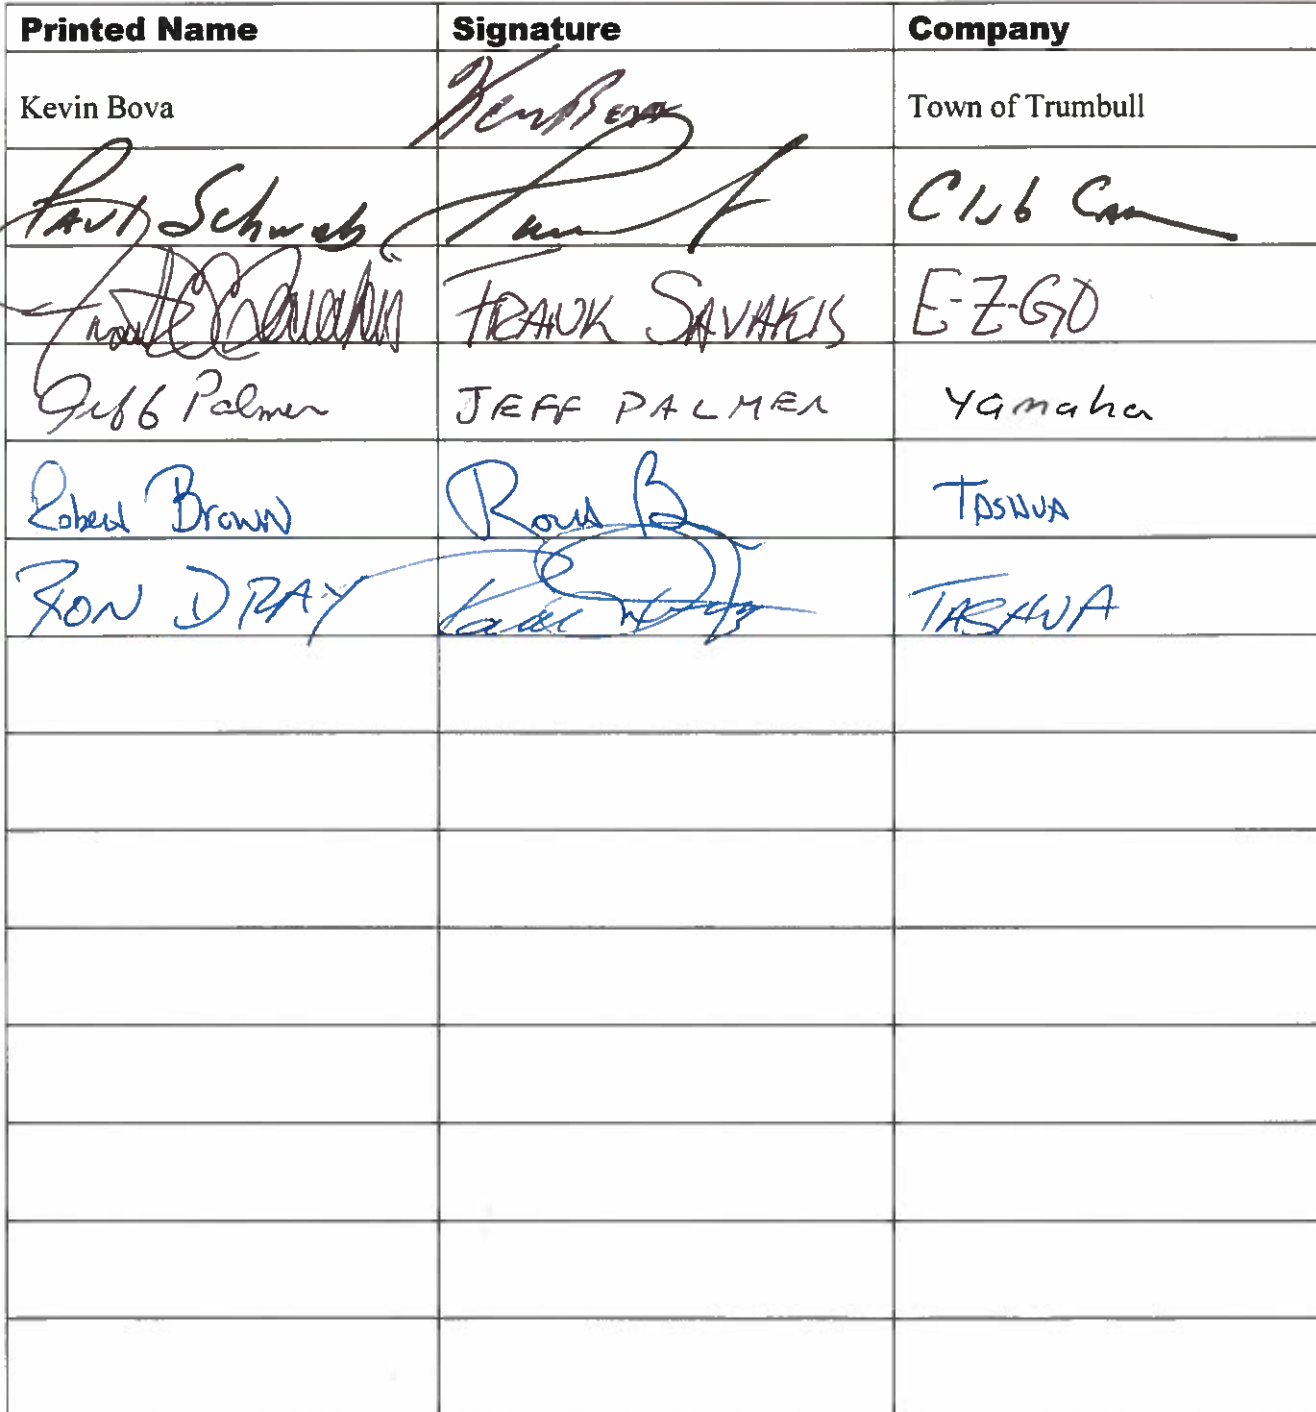 Printed Name Signature Company
Kevin Bova Kevin Bova Town of Trumbull
Paul Schwab Club Car
Frank Savakis FRANK SAVAKIS E-Z-GO
Jeff Palmer JEFF PALMER Yamaha
Robert Brown TASHUA
RON DRAY TASHUA